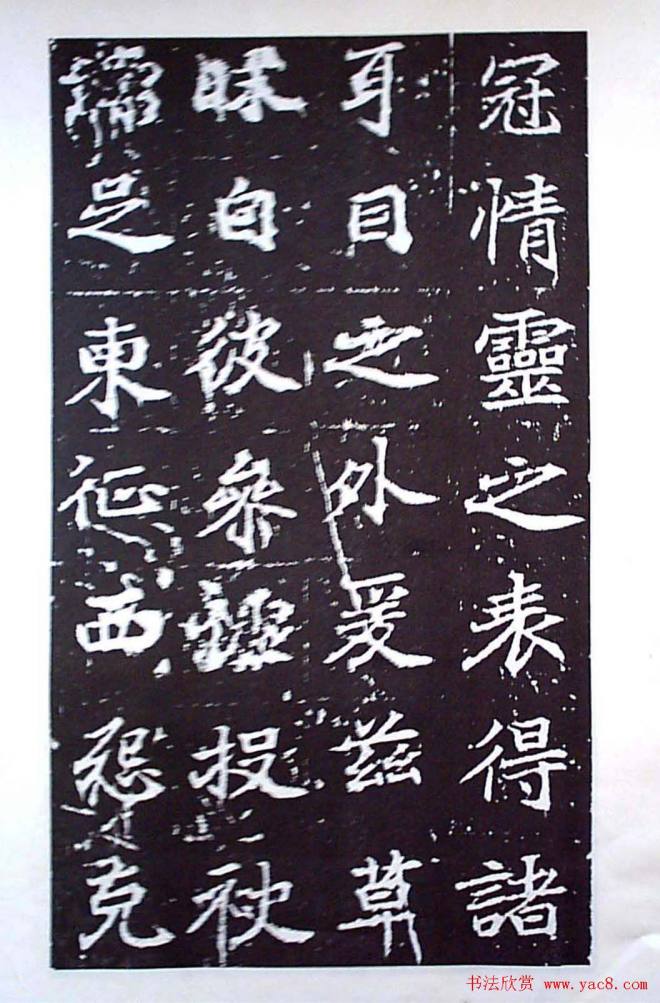 冠情靈之表得諸
耳目之外爰兹草
昧自彼參墟投袂
足東征西怨克
书法欣赏 www.yac8.com